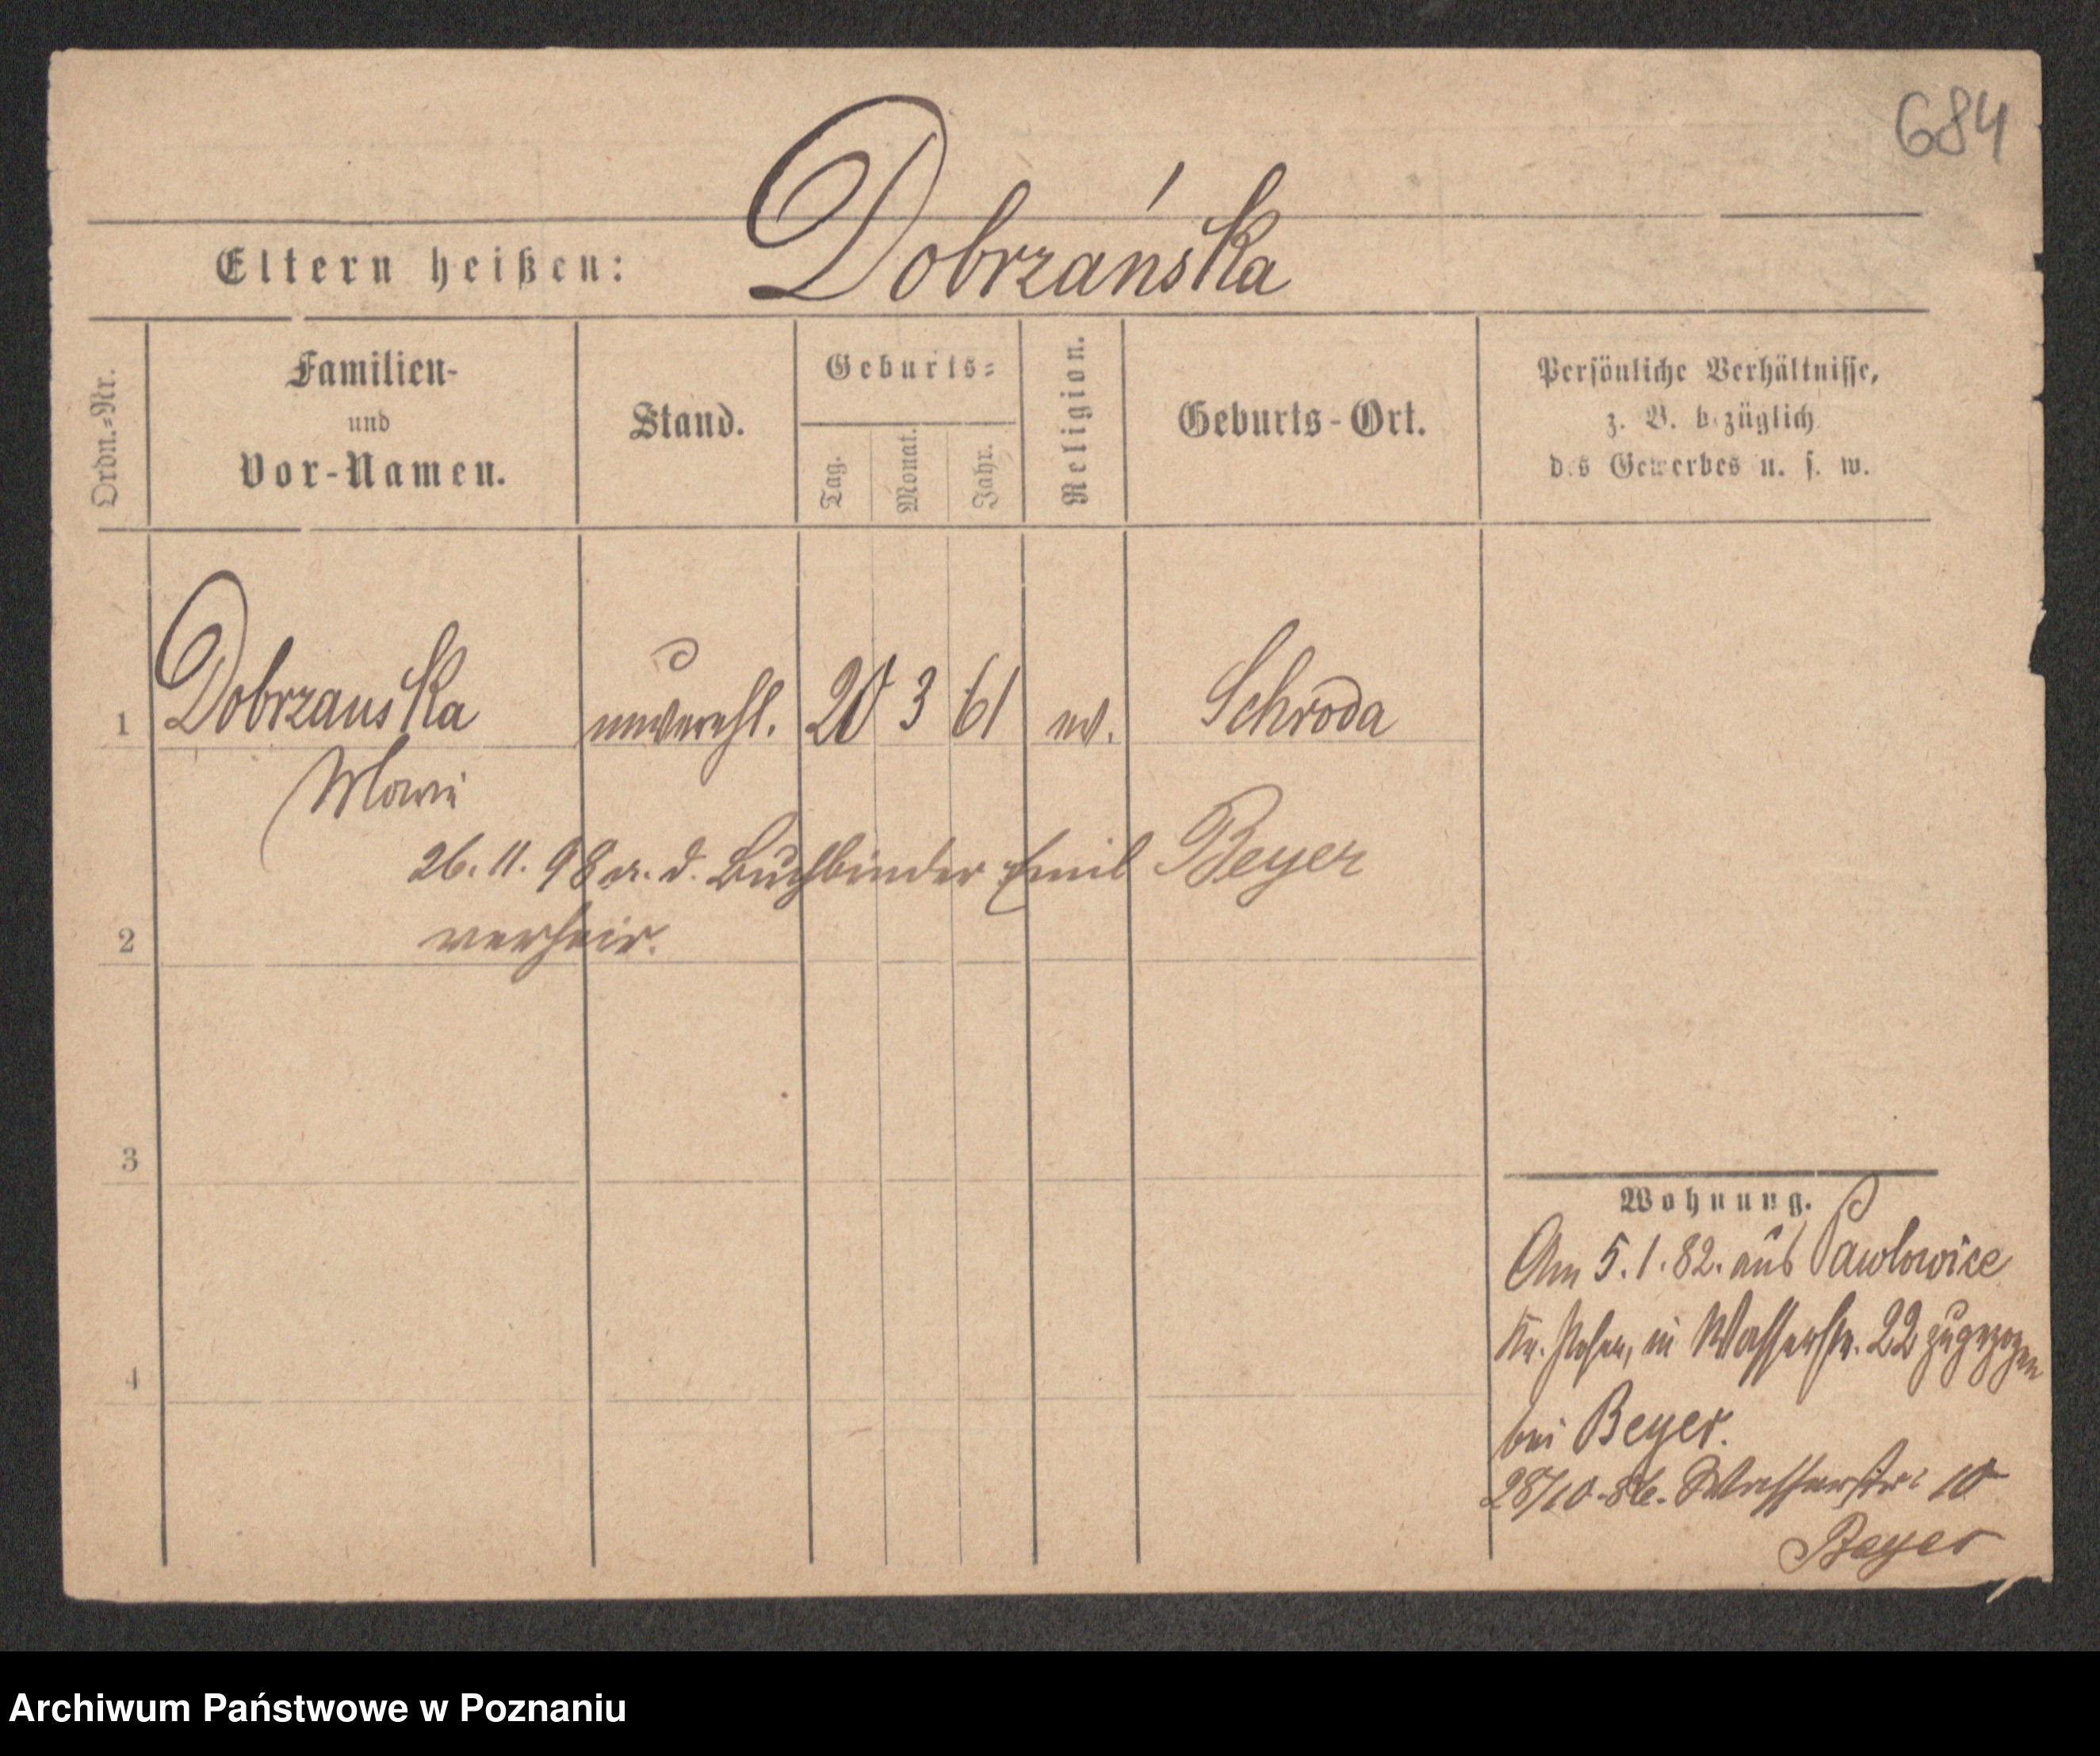 684
Eltern heißen: Dobrzańska
Ordn.=Nr.
Familien-
und
Vor-Namen.
Stand.
Geburts=
Tag.
Monat.
Jahr.
Religion.
Geburts-Ort.
Persönliche Verhältnisse,
z. B. bezüglich
des Gewerbes u. s. w.
1 Dobrzanska unverehl. 20 3 61 ev. Schroda
Marie
26. 11. 98 m. d. Buchbinder Emil Beyer
2 verheir.
3
4
Wohnung.
Am 5.1.82. aus Pawlowice
Kr. Posen, in Wasserstr. 22 zugezogen
bei Beyer.
28/10.86. Wasserstr: 10
Beyer
Archiwum Państwowe w Poznaniu